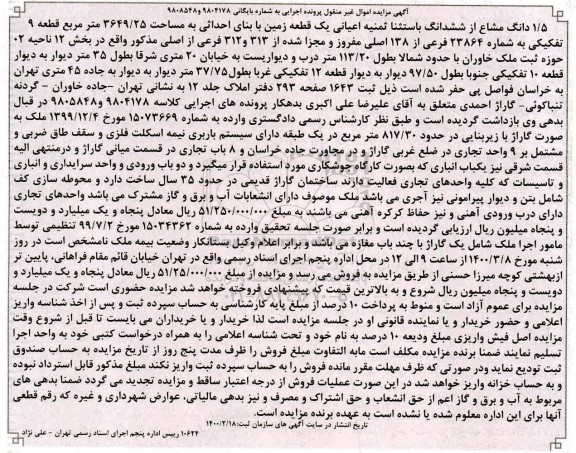 آگهی مزایده اموال غیر منقول پرونده اجرایی به شماره بایگانی ۹۸۰۴۱۷۸ و ۹۸۰۸۵۴۸
۱/۵ دانگ مشاع از ششدانگ باستثنا ثمنیه اعیانی یک قطعه زمین با بنای احداثی به مساحت ۳۶۴۹/۲۵ متر مربع قطعه ۹
تفکیکی به شماره ۲۳۸۶۴ فرعی از ۱۳۸ اصلی مفروز و مجزا شده از ۳۱۳ و ۳۱۲ فرعی از اصلی مذکور واقع در بخش ۱۲ ناحیه ۰۲
حوزه ثبت ملک خاوران با حدود شمالا بطول ۱۱۳/۲۰ متر درب و دیواریست به خیابان ۲۰ متری شرقا بطول ۳۵ متر دیوار به دیوار
قطعه ۱۰ تفکیکی جنوبا بطول ۹۷/۵۰ دیوار به دیوار قطعه ۱۲ تفکیکی غربا بطول ۳۷/۷۵ متر دیوار به دیوار به جاده ۴۵ متری تهران
به خراسان فواصل پی حفر شده است ذیل ثبت ۱۶۴۳ صفحه ۲۹۳ دفتر املاک جلد ۱۲ به نشانی تهران –جاده خاوران - گردنه
تنباکوئی- گاراژ احمدی متعلق به آقای علیرضا علی اکبری بدهکار پرونده های اجرایی کلاسه ۹۸۰۴۱۷۸ و ۹۸۰۵۸۴۸ در قبال
بدهی وی بازداشت گردیده است و طبق نظر کارشناس رسمی دادگستری وارده به شماره ۱۵۰۷۳۶۶۹ مورخ ۱۳۹۹/۱۲/۴ ملک به
صورت گاراژ با زیربنایی در حدود ۸۱۷/۳۰ متر مربع در یک طبقه دارای سیستم باربری نیمه اسکلت فلزی و سقف طاق ضربی و
مشتمل بر ۹ واحد تجاری در ضلع غربی گاراژ و در مجاورت جاده خراسان و ۸ باب تجاری در قسمت میانی گاراژ و درمنتهی الیه
قسمت شرقی نیز یکباب انباری که بصورت کارگاه جوشکاری مورد استفاده قرار میگیرد و دو باب ورودی و واحد سرایداری و انباری
و تاسیسات که کلیه واحدهای تجاری فعالیت دارند ساختمان گاراژ قدیمی در حدود ۳۵ سال ساخت دارد و محوطه سازی کف
شامل بتن و دیوار پیرامونی نیز آجری می باشد ملک موصوف دارای انشعابات آب و برق و گاز مشترک می باشد واحدهای تجاری
دارای درب ورودی آهنی و نیز حفاظ کرکره آهنی می باشند به مبلغ ۵۱/۲۵۰/۰۰۰/۰۰۰ ریال معادل پنجاه و یک میلیارد و دویست
و پنجاه میلیون ریال ارزیابی گردیده است و برابر صورت جلسه تحقیق وارده به شماره ۱۵۰۳۴۳۶۲ مورخ ۹۹/۷/۲ تنظیمی توسط
مامور اجرا ملک شامل یک گاراژ با چند باب مغازه می باشد و برابر اعلام وکیل بستانکار وضعیت بیمه ملک نامشخص است در روز
شنبه مورخ ۱۴۰۰/۳/۸ از ساعت ۹ الی ۱۲ در محل اداره پنجم اجرای اسناد رسمی واقع در تهران خیابان قائم مقام فراهانی، پایین تر
ازبهشتی کوچه میرزا حسنی از طریق مزایده به فروش می رسد و مزایده از مبلغ ۵۱/۲۵۰/۰۰۰/۰۰۰ ریال معادل پنجاه و یک میلیارد و
دویست و پنجاه میلیون ریال شروع و به بالاترین قیمت که پیشنهادی فروخته خواهد شد مزایده حضوری است شرکت در جلسه
مزایده برای عموم آزاد است و منوط به پرداخت ۱۰ درصد از مبلغ پایه کارشناسی به حساب سپرده ثبت و پس از اخذ شناسه واریز
اعلامی و حضور خریدار و یا نماینده قانونی او در جلسه مزایده است لذا خریدار و یا خریداران می بایست تا قبل از شروع وقت
مزایده اصل فیش واریزی مبلغ ودیعه ۱۰ درصد به نام خود و تحت شناسه اعلامی را به همراه درخواست کتبی خود به واحد اجرا
تسلیم نمایند ضمنا برنده مزایده مکلف است مابه التفاوت مبلغ فروش را ظرف مدت پنج روز از تاریخ مزایده به حساب صندوق
ثبت تودیع نماید ودر صورتی که ظرف مهلت مقرر مانده فروش را به حساب سپرده ثبت واریز نکند مبلغ مذکور قابل استرداد نبوده
و به حساب خزانه واریز خواهد شد در این صورت عملیات فروش از درجه اعتبار ساقط و مزایده تجدید می گردد ضمنا بدهی های
مربوط به آب و برق و گاز اعم از حق انشعاب و حق اشتراک و مصرف و نیز بدهی مالیاتی، عوارض شهرداری و غیره که رقم قطعی
آنها برای این اداره معلوم شده یا نشده است به عهده برنده مزایده است.
تاریخ انتشار در سایت آگهی های سازمان ثبت: ۱۴۰۰/۲/۱۸
۱۰۶۲۴ رییس اداره پنجم اجرای اسناد رسمی تهران - علی نژاد